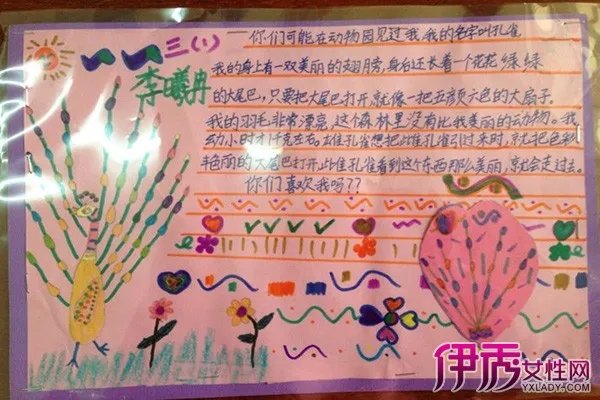 三(1)
李曦冉
你们可能在动物园见过我,我的名字叫孔雀
我的身上有一双美丽的翅膀,身后还长着一个花花绿绿
的大尾巴,只要把大尾巴打开,就像一把五颜六色的大扇子。
我的羽毛非常漂亮,这个森林里没有比我美丽的动物。我
小时才1仟克左右。雄孔雀想把雌孔雀引过来时,就把色彩
艳丽的大尾巴打开,雌孔雀看到这个东西那么美丽,就会走过去。
你们喜欢我吗??
伊秀女性网
YXLADY.COM